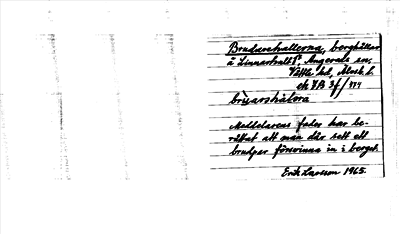 Brudarehallorna, berghällar
å Linnarhult 1:1, Angereds sn,
Vättle hd, Älvsb. l.
ek 7B 3f/
brùarehàlora
Meddelarens fader har be-
rättat att man där sett ett
brudpar försvinna in i berget.
Erik Larsson 1965.